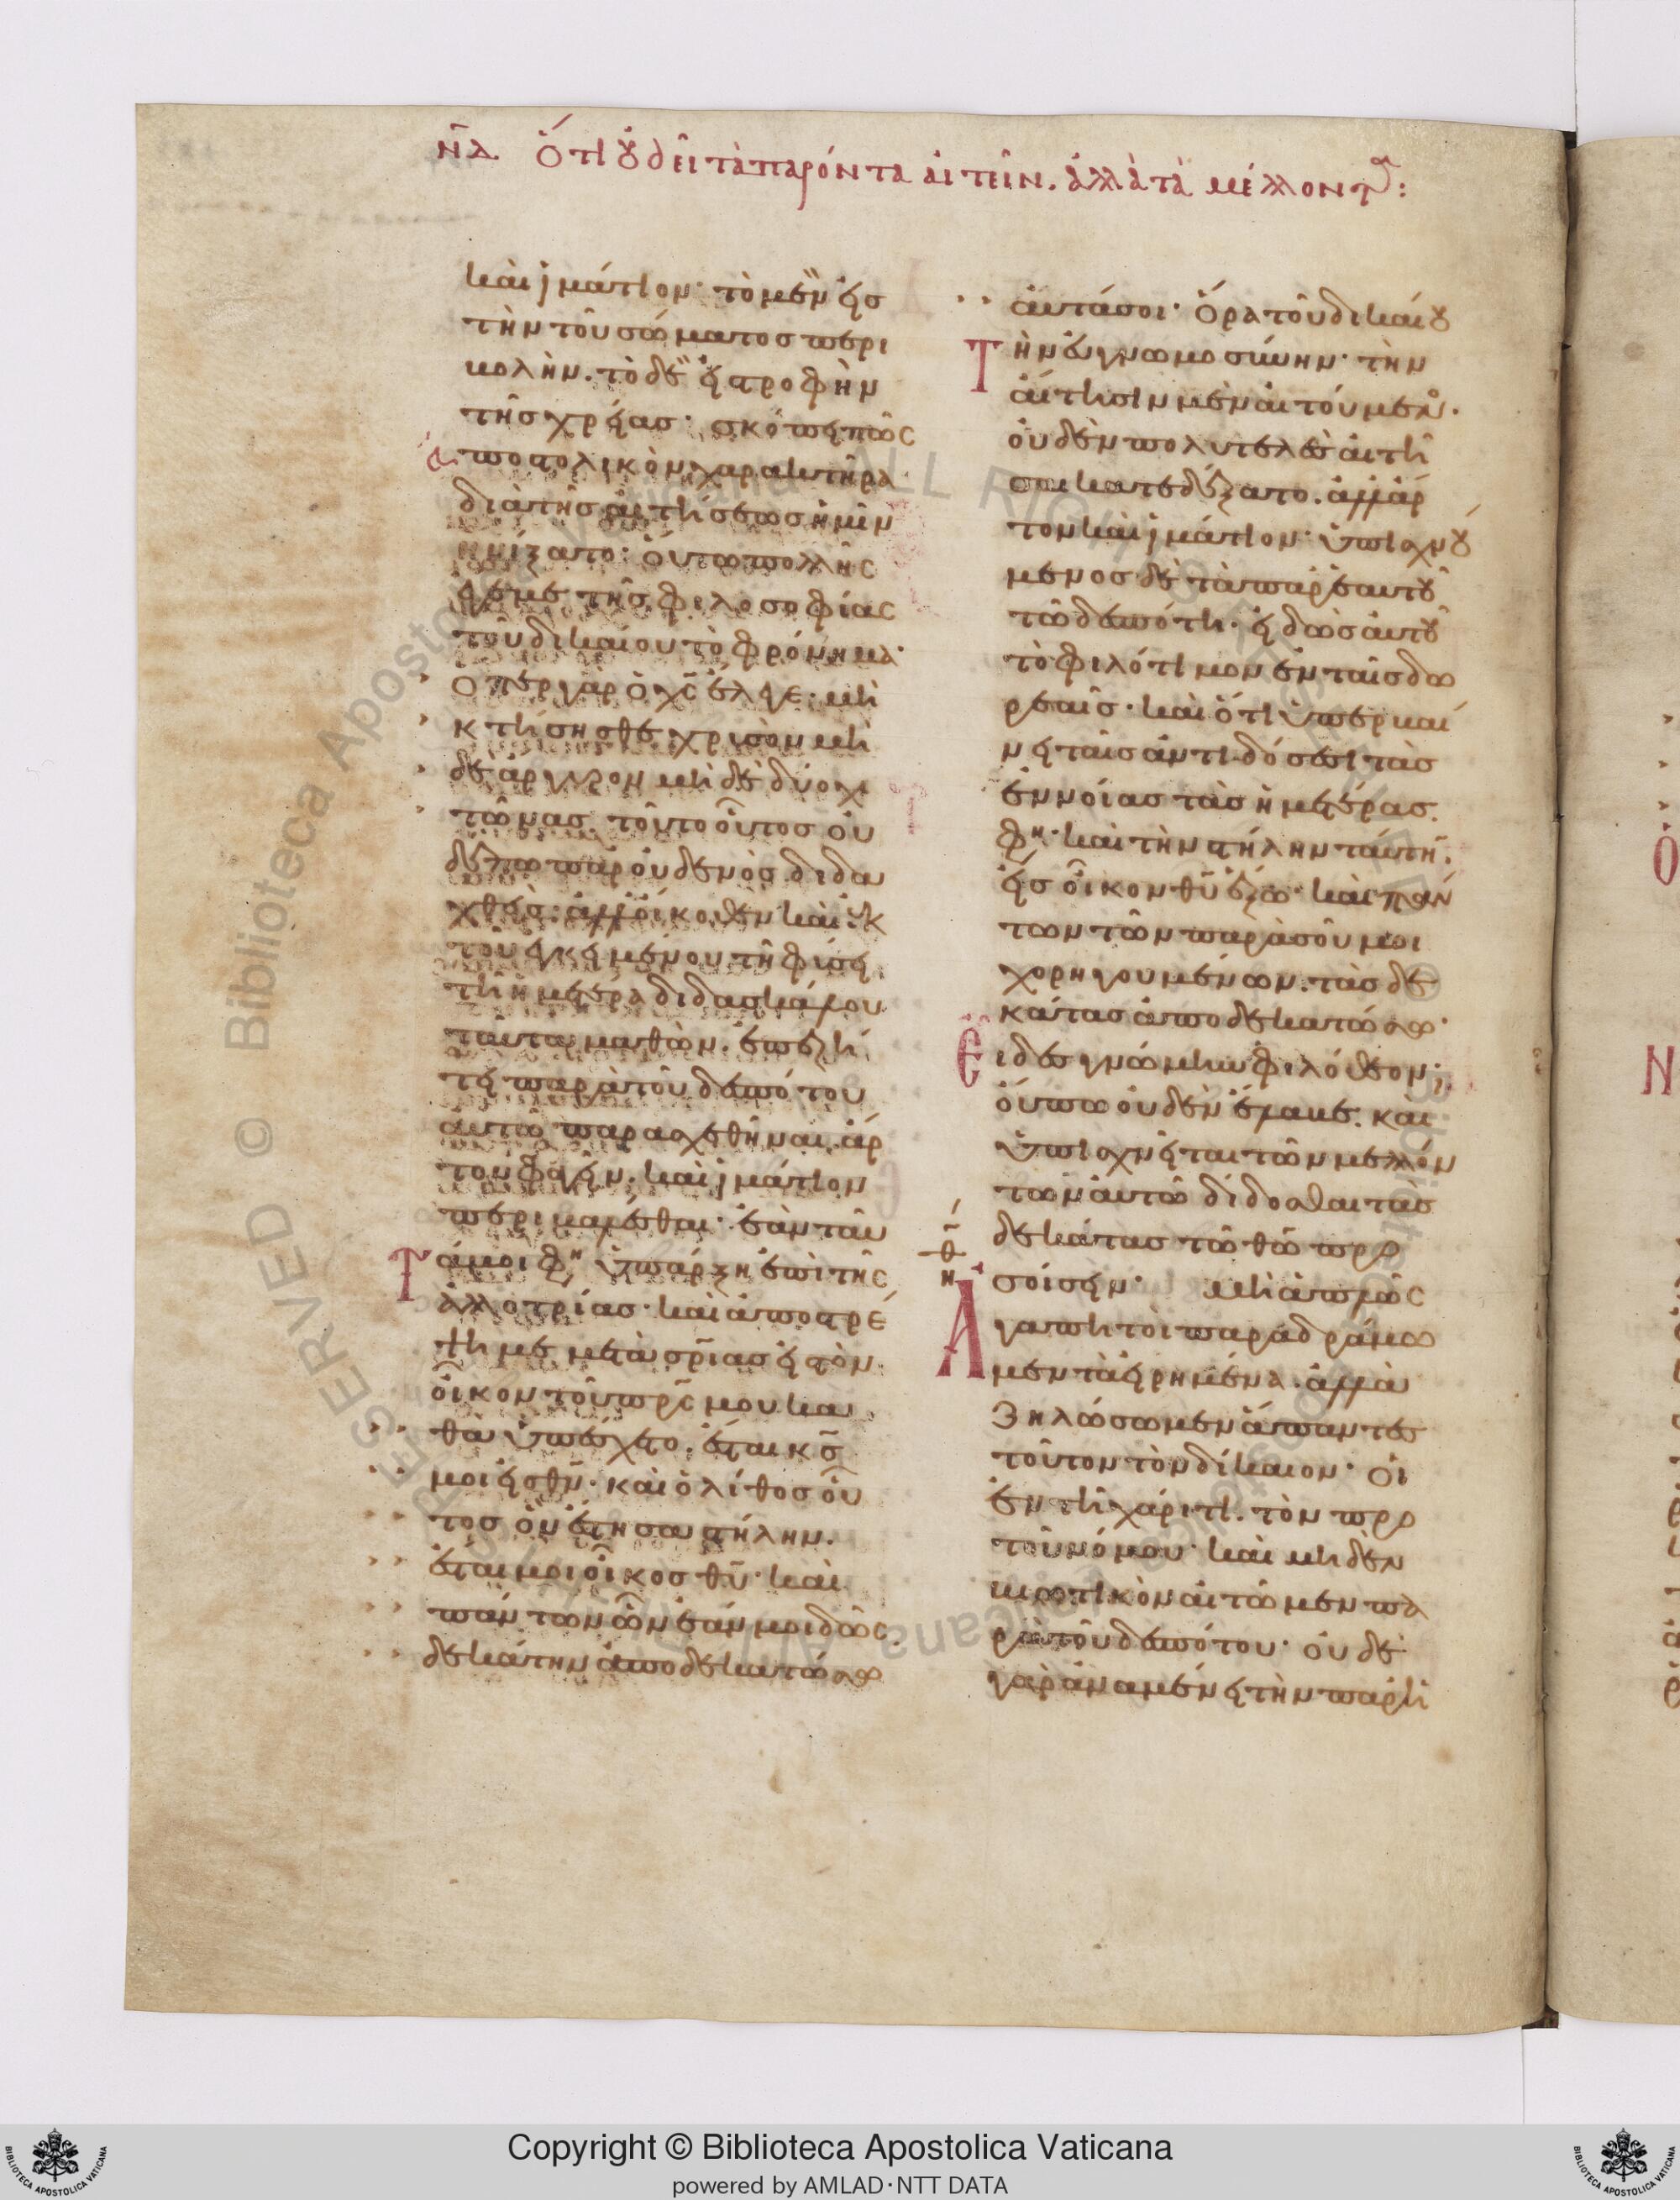 να Ὅτι οὐ δεῖ τὰ παρόντα αἰτεῖν. ἀλλὰ τὰ μέλλοντα:
καὶ ἱμάτιον· τὸ μὲν εἰς
τὴν τοῦ σώματος περι
βολὴν. τὸ δὲ εἰς τροφὴν
τῆς χρείας· σκόπει πῶς
ἀποστολικὸν χαρακτῆρα
διὰ τῆς αἰτήσεως ἡμῖν
ᾐνίξατο· οὕτω πολλῆς
ἔγεμε τῆς φιλοσοφίας
τοῦ δικαίου τὸ φρόνημα·
ὅπερ γὰρ ὁ χς ἔλεγε· μὴ
κτήσησθε χρυσὸν μὴ
δὲ ἄργυρον μὴ δὲ δύο χι
τῶνας. τοῦτο οὗτος οὐ
δέπω παρ' οὐδενὸς διδα
χθείς. ἀλλ' οἴκοθεν καὶ ἐκ
τοῦ ἐγκειμένου τῆ φύσει
τῆ ἡμετέρα διδασκάλου
ταῦτα μαθὼν. ἐπεζή
τει παρὰ τοῦ δεσπότου
αὐτῶ παρασχεθῆναι. ἄρ
τον φαγεῖν. καὶ ἱμάτιον
περιβαλέσθαι· ἐὰν ταῦ
τά μοι φη ὑπάρξη ἐπὶ τῆς
ἀλλοτρίας· καὶ ἀποστρέ
ψη με μετὰ σριας εἰς τὸν
οἶκον τοῦ πρς μου κα
θὰ ὑπέσχετο. ἔσται κς
μοι εἰς θν· καὶ ὁ λίθος οὗ
τος ὃν ἔστησα στήλην.
ἔσται μοι οἶκος θυ· καὶ
πάντων ὧν ἐάν μοι δῶς.
δεκάτην ἀποδεκατώσω
αὐτά σοι· Ὅρα τοῦ δικαίου
τὴν εὐγνωμοσύνην· τὴν
αἴτησιν μὲν αἰτούμε
οὐδὲν πολυτελὲς αἰτῆ
σαι κατεδέξατο. ἀλλ' ἄρ
τον καὶ ἱμάτιον· ὑπισχνού
μενος δὲ τὰ παρ' ἑαυτοῦ
τῶ δεσπότη. εἰδὼς αὐτοῦ
τὸ φιλότιμον ἐν ταῖς δω
ρεαῖς· καὶ ὅτι ὑπερβαί
νει ταῖς ἀντιδόσεσι τὰς
ἐννοίας τὰς ἡμετέρας.
φη· καὶ τὴν στήλην ταύτη
εἰς οἶκον θυ ἕξω· καὶ πάν
των τῶν παρὰ σοῦ μοι
χορηγουμένων. τὰς δε
κάτας ἀποδεκατώσω·
εἶδες γνώμην φιλόθεον;
οὔπω οὐδὲν ἔλαβε. καὶ
ὑπισχνεῖται τῶν μελλόν
των αὐτῶ δίδοσθαι τὰς
δεκάτας τῶ θῶ προ
σοίσειν· μὴ ἁπλῶς
ἀγαπητοὶ παραδράμω
μεν τὰ εἰρημένα. ἀλλὰ
ζηλώσωμεν ἅπαντες
τοῦτον τὸν δίκαιον· οἱ
ἐν τῆ χάριτι. τὸν πρὸ
τοῦ νόμου· καὶ μηδὲν
βιωτικὸν αἰτῶμεν πα
ρὰ τοῦ δεσπότου· οὐδὲ
γὰρ ἀναμένει τὴν παρ' ἡ
Copyright © Biblioteca Apostolica Vaticana
powered by AMLAD·NTT DATA